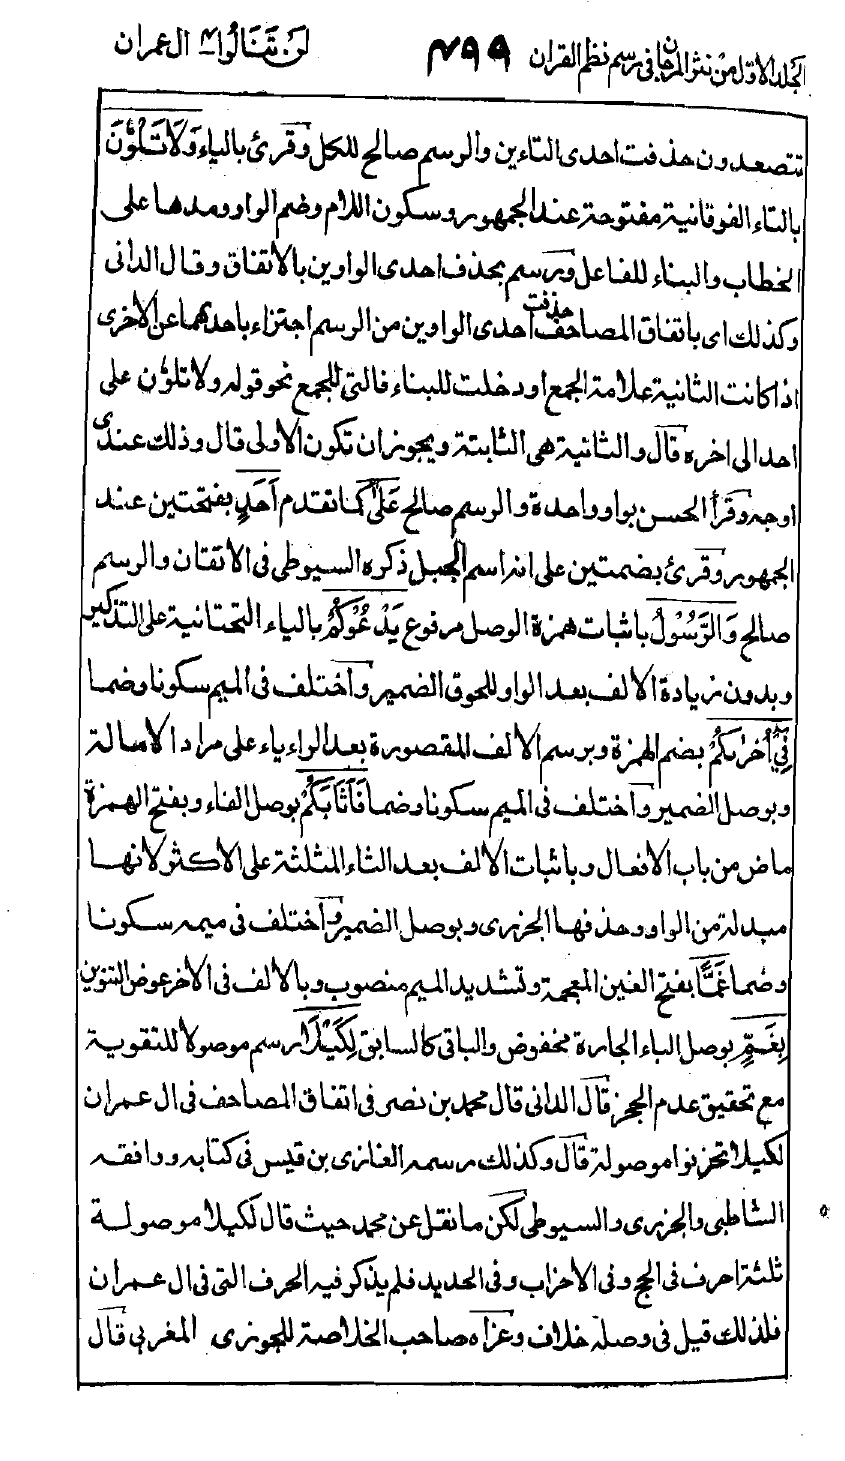 الجلد الاول من نثر المرجان فى رسم نظم القران ٤٩٩ لن تنالوا ٤ ال عمران
تتصعدون حذفت احدى التاءين والرسم صالح للكل وقرئ بالياء وَلَا تَلْوُنَ
بالتاء الفوقانية مفتوحة عند الجمهور وسكون اللام وضم الواو ومدها على
الخطاب والبناء للفاعل ورسم بحذف احدى الواوين بالاتفاق وقال الدانى
وكذلك اى باتفاق المصاحف حذفت احدى الواوين من الرسم اجتزاء باحدهما عن الاخرى
اذا كانت الثانية علامة الجمع او دخلت للبناء فالتى للجمع نحو قوله ولا تلون على
احد الى اخره قال والثانية هى الثابتة ويجوز ان تكون الاولى قال وذلك عندى
اوجه وقرأ الحسن بواو واحدة والرسم صالح عَلَىٰ كما تقدم اَحَدٍ بفتحتين عند
الجمهور وقرئ بضمتين على انه اسم الجبل ذكره السيوطى فى الاتقان والرسم
صالح وَالرَّسُوْلُ باثبات همزة الوصل مرفوع يَدْعُوْكُمْ بالياء التحتانية على التذكير
وبدون زيادة الالف بعد الواو للحوق الضمير واختلف فى الميم سكونا وضما
فِيْ اُخْرٰىكُمْ بضم الهمزة وبرسم الالف المقصورة بعد الراء ياء على مراد الامالة
وبوصل الضمير واختلف فى الميم سكونا وضما فَاَثَابَكُمْ بوصل الفاء وبفتح الهمزة
ماض من باب الافعال وباثبات الالف بعد الثاء المثلثة على الاكثر لانها
مبدلة من الواو وحذفها الجزرى وبوصل الضمير واختلف فى ميمه سكونا
وضما غَمًّا بفتح الغين المعجمة وتشديد الميم منصوب وبالالف فى الاخر عوض التنوين
بِغَمٍّ بوصل الباء الجارة مخفوض والباقى كالسابق لِكَيْلَا رسم موصولا للتقوية
مع تحقيق عدم الحجز قال الدانى قال محمد بن نصر فى اتفاق المصاحف فى ال عمران
لكيلا تحزنوا موصولة قال وكذلك رسمه الغازى بن قيس فى كتابه ووافقه
الشاطبى والجزرى والسيوطى لكن ما نقل عن محمد حيث قال لكيلا موصولة
ثلثة احرف فى الحج وفى الاحزاب وفى الحديد فلم يذكر فيه الحرف التى فى ال عمران
فلذلك قيل فى وصله خلاف وعزاه صاحب الخلاصة للجوزى المغربى قال